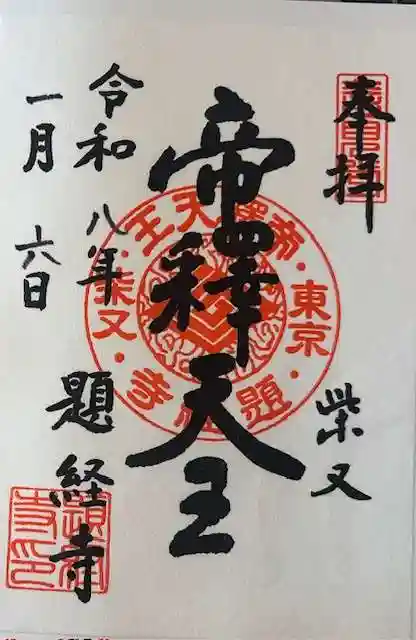 奉拝
柴又
帝釈天王
令和八年
一月六日
題経寺
帝釋天王
東京
柴又
題経寺